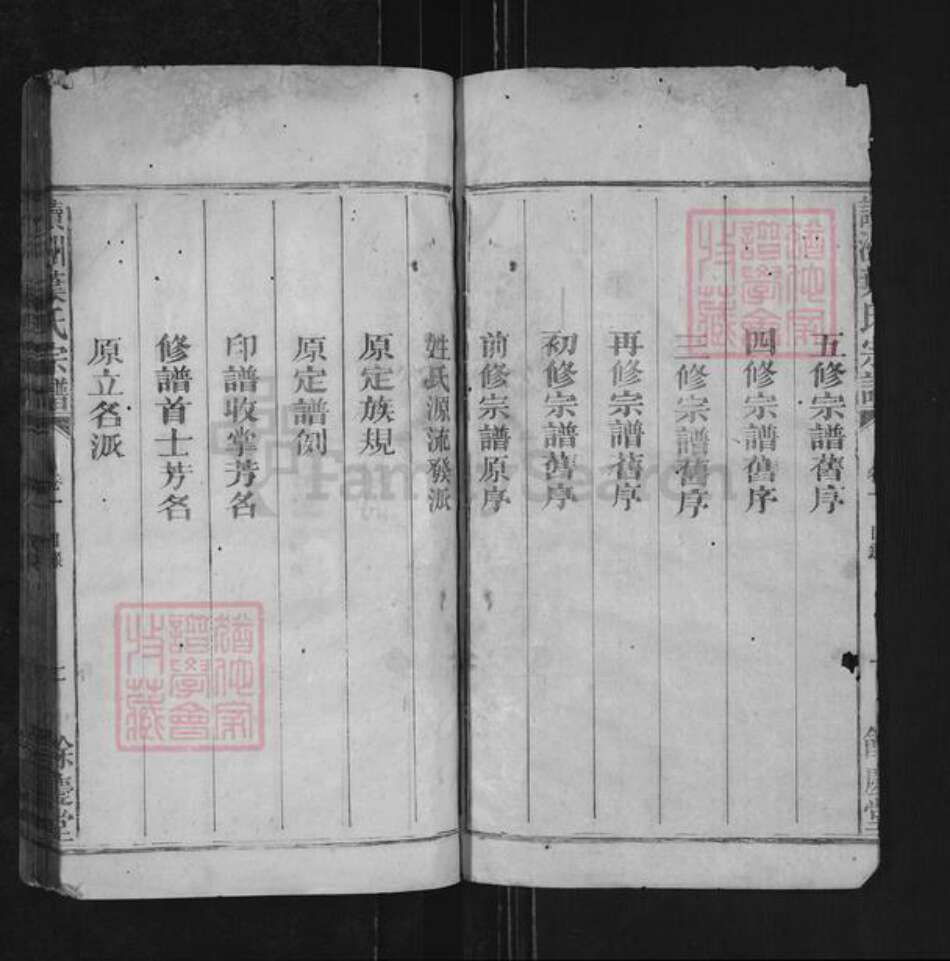 五修宗譜舊序
四修宗譜舊序
三修宗譜舊序
再修宗譜舊序
初修宗譜舊序
前修宗譜原序
姓氏源流發派
原定族規
原定譜例
印譜收掌芳名
修譜首士芳名
原立名派
葉氏宗譜
卷一
目錄
二
餘慶堂
譜學會
收藏
FamilySearch